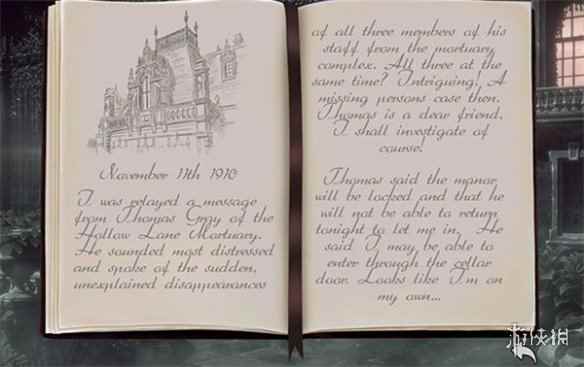 November 11th 1910
I was relayed a message
from Thomas Gray of the
Hollow Lane Mortuary.
He sounded most distressed
and spoke of the sudden,
unexplained disappearances
of all three members of his
staff from the mortuary
complex. All three at the
same time? Intriguing! A
missing persons case then.
Thomas is a dear friend.
I shall investigate of
course!
Thomas said the manor
will be locked and that he
will not be able to return
tonight to let me in. He
said I may be able to
enter through the cellar
door. Looks like I'm on
my own...
游侠网